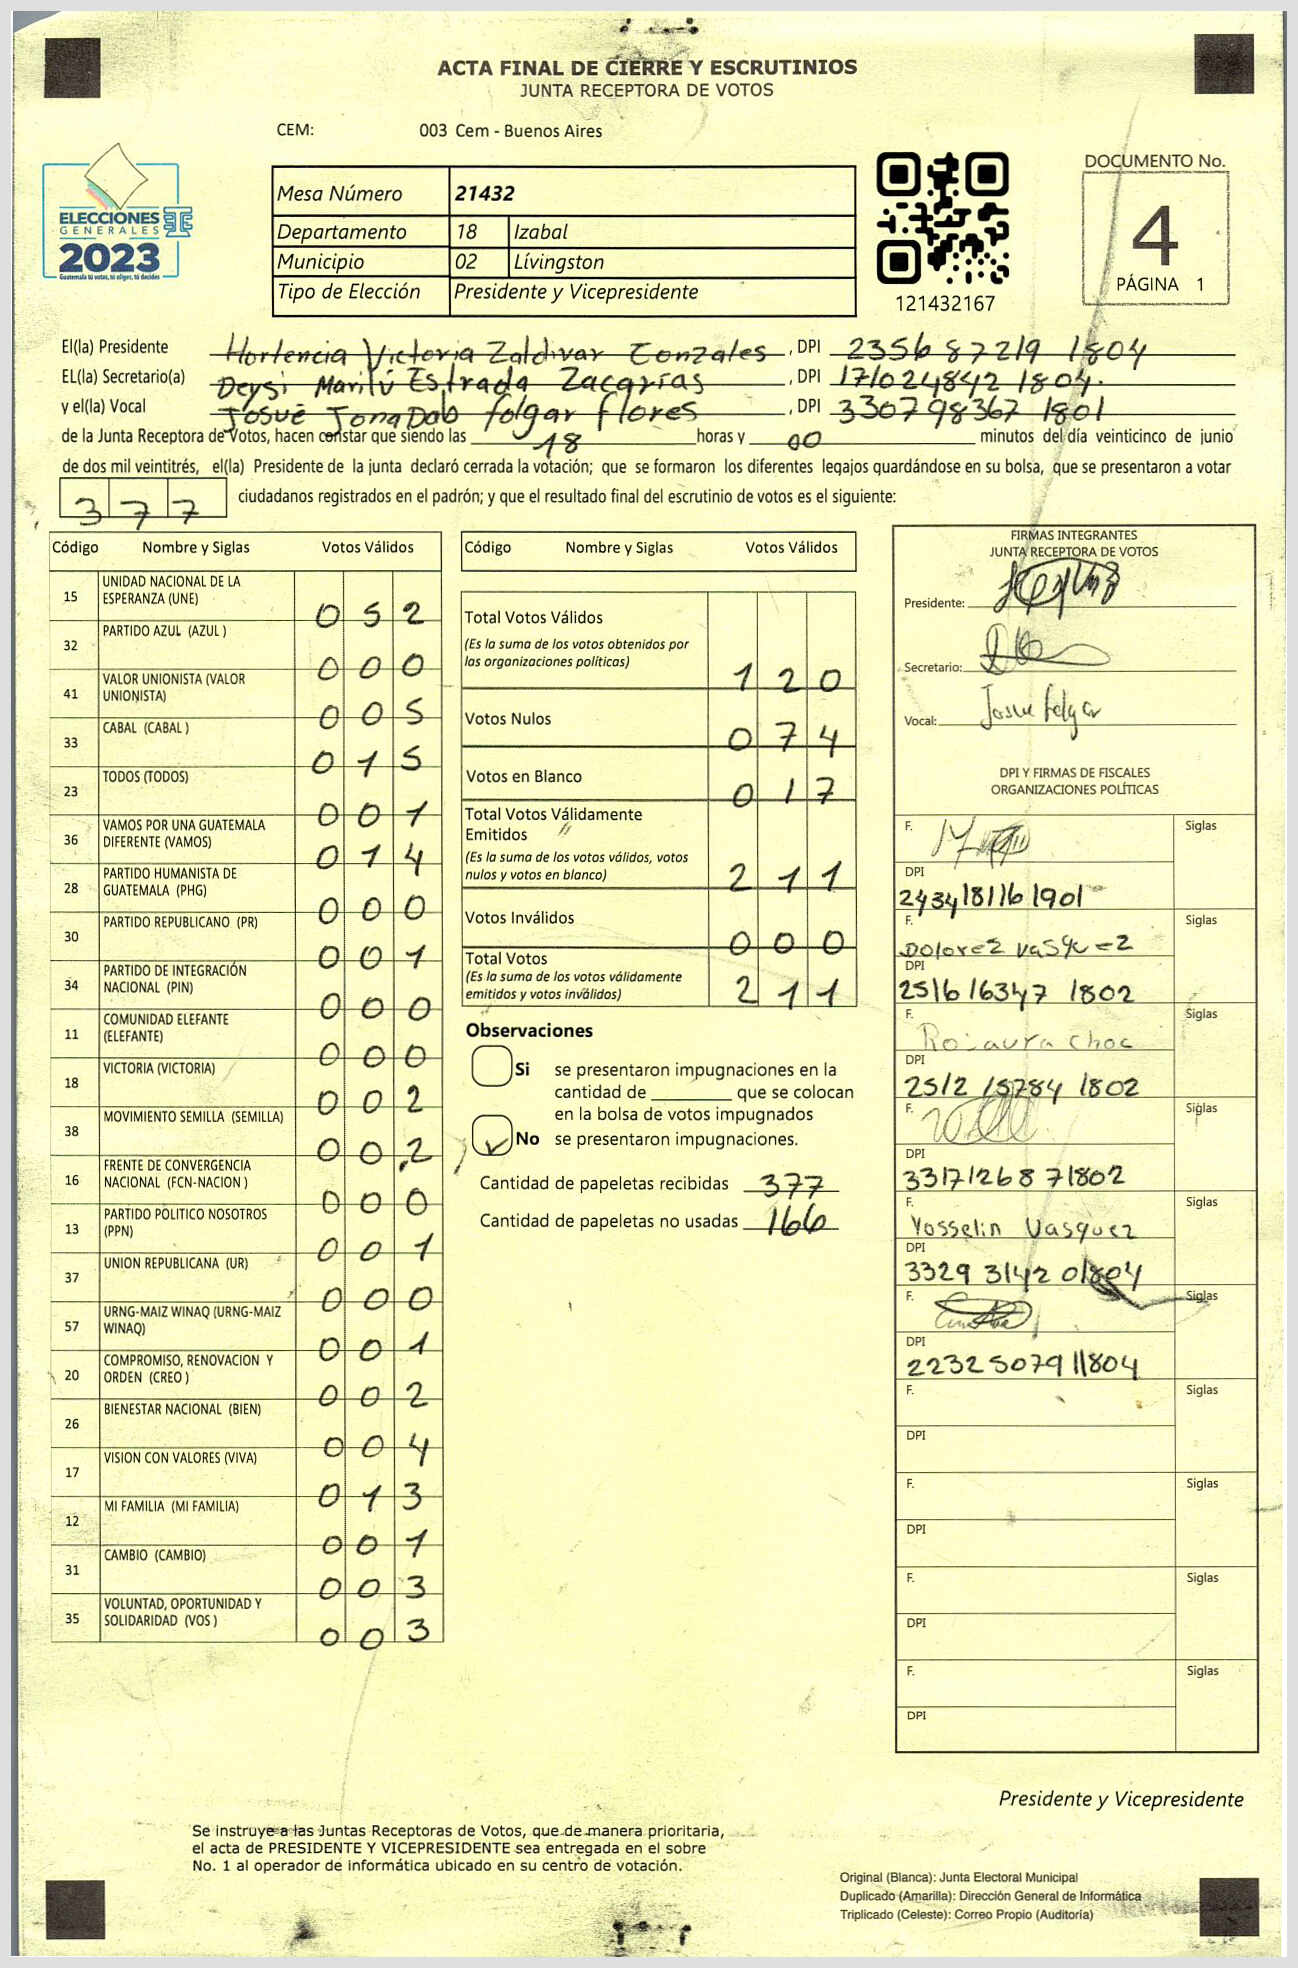 ACTA FINAL DE CIERRE Y ESCRUTINIOS
JUNTA RECEPTORA DE VOTOS
CEM: 003 Cem - Buenos Aires
ELECCIONES
GENERALES
2023
Guatemala tú votas, tú eliges, tú decides
Mesa Número 21432
Departamento 18 Izabal
Municipio 02 Lívingston
Tipo de Elección Presidente y Vicepresidente
121432167
DOCUMENTO No.
4
PÁGINA 1
El(la) Presidente Hortencia Victoria Zaldivar Gonzales, DPI 2356 87219 1804
EL(la) Secretario(a) Deysi Marilú Estrada Zacarías, DPI 171024842 1804.
y el(la) Vocal Josué JonaDab folgar flores, DPI 330798367 1801
de la Junta Receptora de Votos, hacen constar que siendo las 18 horas y 00 minutos del día veinticinco de junio
de dos mil veintitrés, el(la) Presidente de la junta declaró cerrada la votación; que se formaron los diferentes legajos guardándose en su bolsa, que se presentaron a votar
377 ciudadanos registrados en el padrón; y que el resultado final del escrutinio de votos es el siguiente:
Código Nombre y Siglas Votos Válidos
15 UNIDAD NACIONAL DE LA
ESPERANZA (UNE) 052
32 PARTIDO AZUL (AZUL ) 000
41 VALOR UNIONISTA (VALOR
UNIONISTA) 005
33 CABAL (CABAL ) 015
23 TODOS (TODOS) 001
36 VAMOS POR UNA GUATEMALA
DIFERENTE (VAMOS) 014
28 PARTIDO HUMANISTA DE
GUATEMALA (PHG) 000
30 PARTIDO REPUBLICANO (PR) 001
34 PARTIDO DE INTEGRACIÓN
NACIONAL (PIN) 000
11 COMUNIDAD ELEFANTE
(ELEFANTE) 000
18 VICTORIA (VICTORIA) 002
38 MOVIMIENTO SEMILLA (SEMILLA) 002
16 FRENTE DE CONVERGENCIA
NACIONAL (FCN-NACION ) 000
13 PARTIDO POLITICO NOSOTROS
(PPN) 001
37 UNION REPUBLICANA (UR) 000
57 URNG-MAIZ WINAQ (URNG-MAIZ
WINAQ) 001
20 COMPROMISO, RENOVACION Y
ORDEN (CREO ) 002
26 BIENESTAR NACIONAL (BIEN) 004
17 VISION CON VALORES (VIVA) 013
12 MI FAMILIA (MI FAMILIA) 001
31 CAMBIO (CAMBIO) 003
35 VOLUNTAD, OPORTUNIDAD Y
SOLIDARIDAD (VOS ) 003
Código Nombre y Siglas Votos Válidos
Total Votos Válidos
(Es la suma de los votos obtenidos por
las organizaciones políticas) 120
Votos Nulos 074
Votos en Blanco 017
Total Votos Válidamente
Emitidos
(Es la suma de los votos válidos, votos
nulos y votos en blanco) 211
Votos Inválidos 000
Total Votos
(Es la suma de los votos válidamente
emitidos y votos inválidos) 211
Observaciones
Si se presentaron impugnaciones en la
cantidad de ________ que se colocan
en la bolsa de votos impugnados
No se presentaron impugnaciones.
Cantidad de papeletas recibidas 377
Cantidad de papeletas no usadas 166
FIRMAS INTEGRANTES
JUNTA RECEPTORA DE VOTOS
Presidente:
Secretario:
Vocal: Josue folgar
DPI Y FIRMAS DE FISCALES
ORGANIZACIONES POLÍTICAS
F. Siglas
DPI
2434181161901
F. Siglas
Dolorez Vasquez
DPI
2516 16347 1802
F. Siglas
Rosaura Choc
DPI
2512 15784 1802
F. Siglas
DPI
33171268 71802
F. Siglas
Yosselin Vasquez
DPI
3329 3142 01804
F. Siglas
DPI
2232 5079 11804
F. Siglas
DPI
F. Siglas
DPI
F. Siglas
DPI
F. Siglas
DPI
Presidente y Vicepresidente
Se instruye a las Juntas Receptoras de Votos, que de manera prioritaria,
el acta de PRESIDENTE Y VICEPRESIDENTE sea entregada en el sobre
No. 1 al operador de informática ubicado en su centro de votación.
Original (Blanca): Junta Electoral Municipal
Duplicado (Amarilla): Dirección General de Informática
Triplicado (Celeste): Correo Propio (Auditoría)